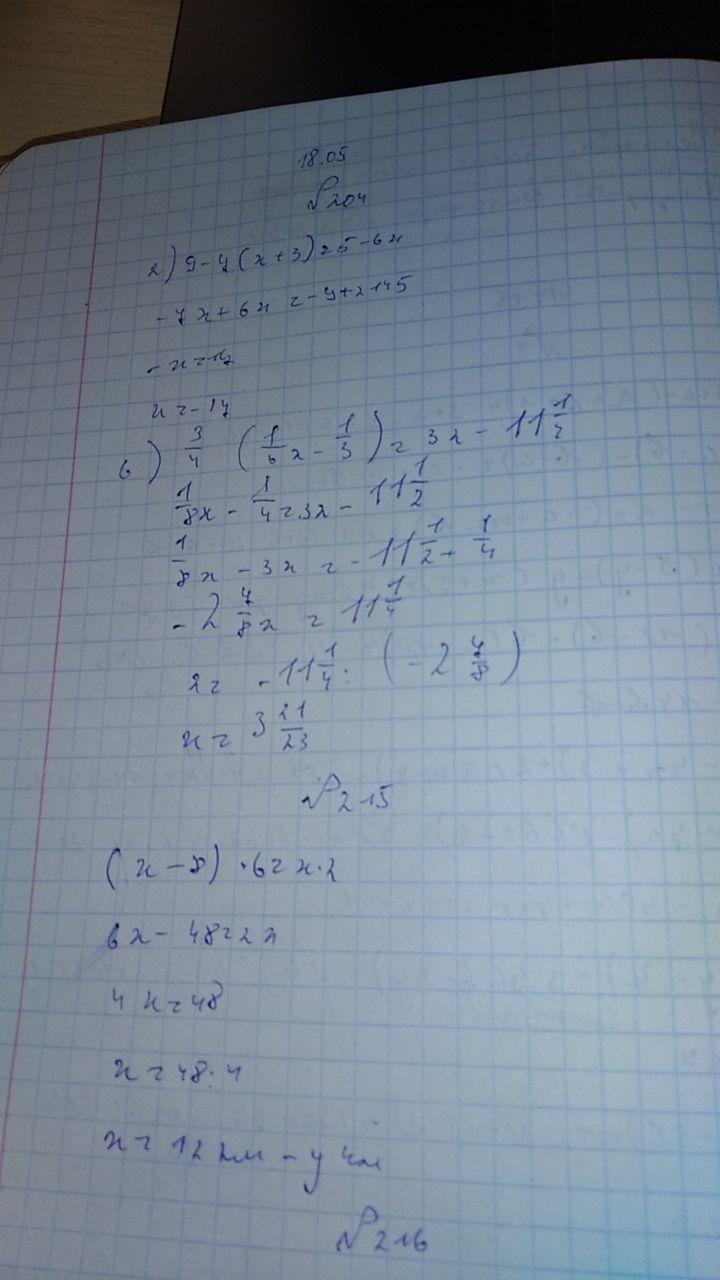 18.05
№204
2) 9-7(x+3)=5-6x
-7x+6x=-9+21+5
-x=17
x=-17
6) 3/4 (1/6x-1/3)=3x-11 1/2
1/8x-1/4=3x-11 1/2
1/8x-3x=-11 1/2+1/4
-2 7/8x=11 1/4
x=-11 1/4:(-2 7/8)
x=3 21/23
№215
(x-8)·6=x·2
6x-48=2x
4x=48
x=48:4
x=12
№216